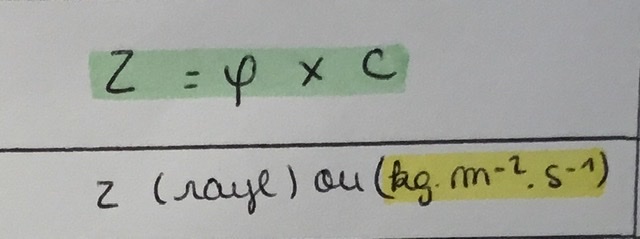 Z = φ × C
Z (rayl) ou (kg. m⁻². s⁻¹)